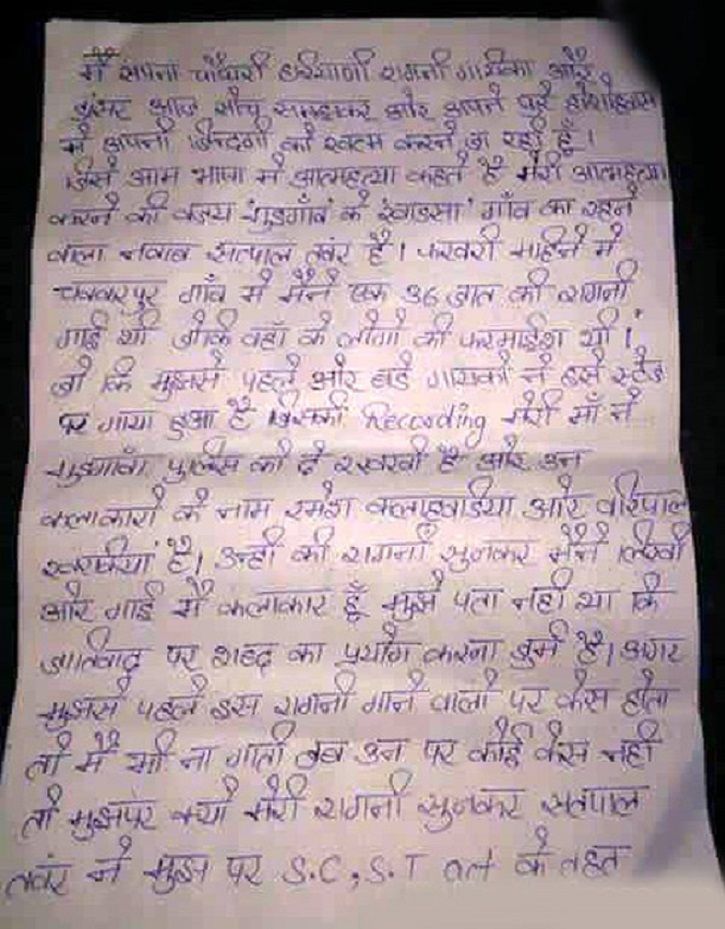 मैं सपना चौधरी हरियाणी रागनी गायिका और
डांसर आज सोच समझकर और अपने पूरे होशोहवास
में अपनी जिन्दगी को खत्म करने जा रही हूँ।
जिसे आम भाषा में आत्महत्या कहते है मेरी आत्महत्या
करने की वजय गुडगाँव के खांडसा गाँव का रहने
वाला नवाब सतपाल तवंर है। फरवरी महिने में
चक्करपुर गाँव में मैंने एक 36 जात की रागनी
गाई थी जोकि वहाँ के लोगो की फरमाईश थी।
जो कि मुझसे पहले और बडे गायको ने इसे स्टेज
पर गाया हुआ है जिसकी Recording मेरी माँ ने
गुडगांवा पुलिस को दे रखखी है और उन
कलाकारो के नाम रमेश कलाहवाडिया और
है। उन्ही की रागनी सुनकर मैंने लिखी
और गाई मैं कलाकार हूँ मुझे पता नही था कि
जातिवाद पर शब्द का प्रयोग करना जुर्म है। अगर
मुझसे पहले इस रागनी गाने वालो पर केस होता
तो मैं भी ना गाती जब उन पर कोई केस नही
तो मुझपर क्यो मेरी रागनी सुनकर सतपाल
तवंर ने मुझ पर S.C, S.T act के तहत